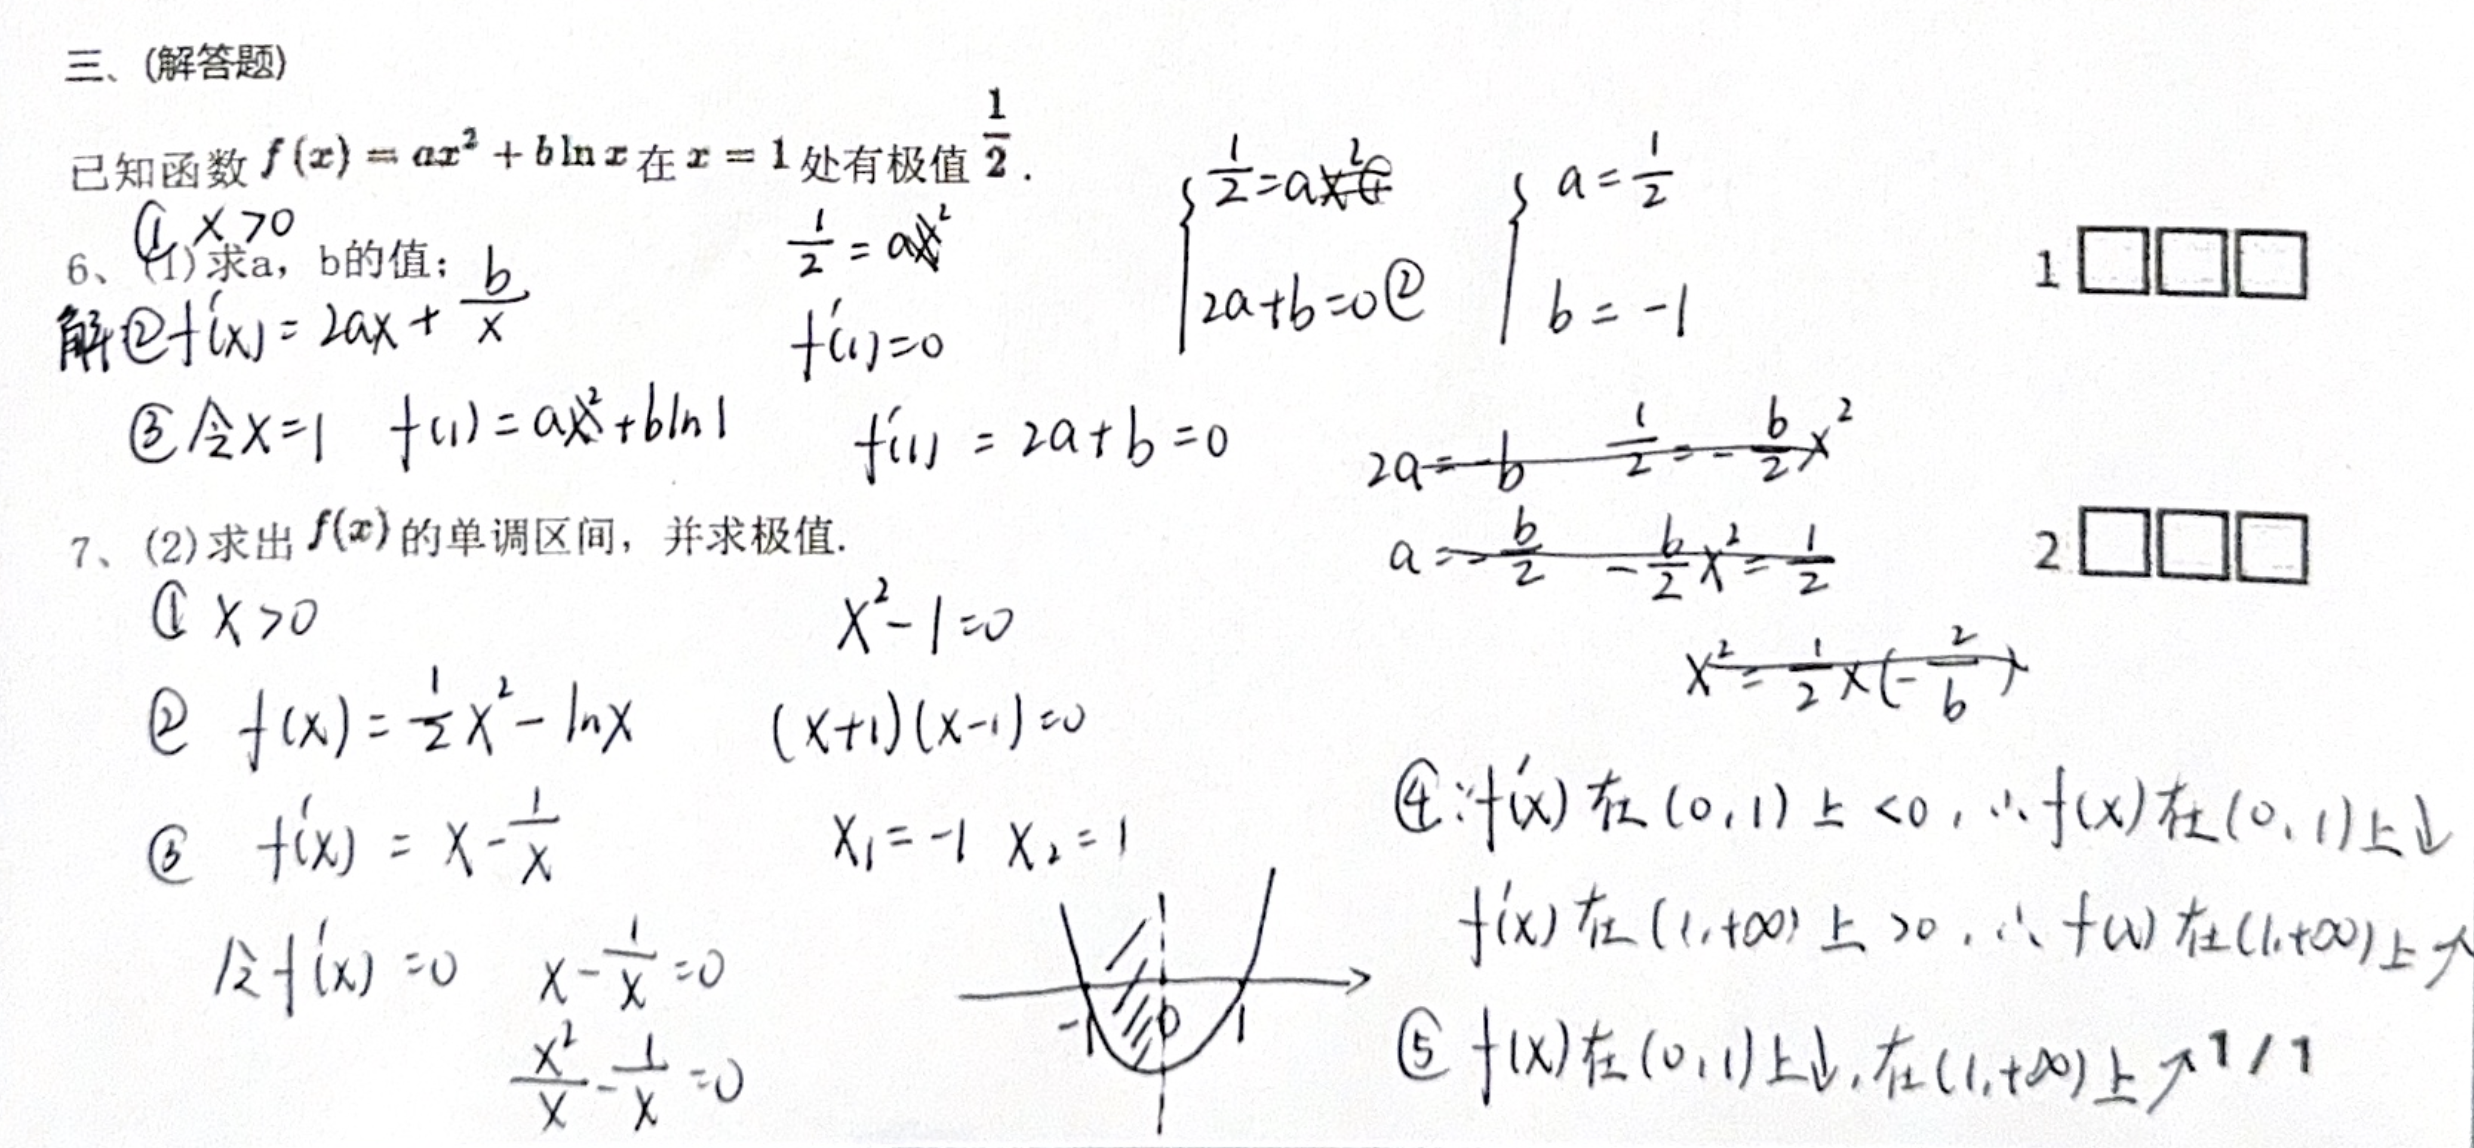 三、(解答题)
已知函数 f(x) = ax² + b ln x 在 x = 1 处有极值 1/2 .
① x>0
6、(1)求a，b的值；
解 ② f'(x) = 2ax + b/x
③ 令x=1 f(1) = ax² + bln1
1/2 = ax²
f'(1)=0
f'(1) = 2a+b=0
{ 1/2 = a
2a+b=0 ②
{ a = 1/2
b = -1
2a = -b 1/2 = -b/2 x²
a = -b/2 -b/2 x² = 1/2
x² = 1/2 x (-2/b)
1 □□□
7、(2)求出 f(x) 的单调区间，并求极值.
① x>0
② f(x) = 1/2 x² - lnx
③ f'(x) = x - 1/x
令f'(x) =0 x - 1/x =0
x²/x - 1/x =0
x² - 1 =0
(x+1)(x-1)=0
x₁ = -1 x₂ = 1
-1 0 1
2 □□□
④ ∵f'(x) 在 (0,1) 上 <0, ∴f(x) 在 (0,1)上↓
f'(x) 在 (1,+∞) 上 >0, ∴ f(x) 在(1,+∞)上↗
⑤ f(x)在(0,1)上↓, 在(1,+∞)上↗
1 / 1